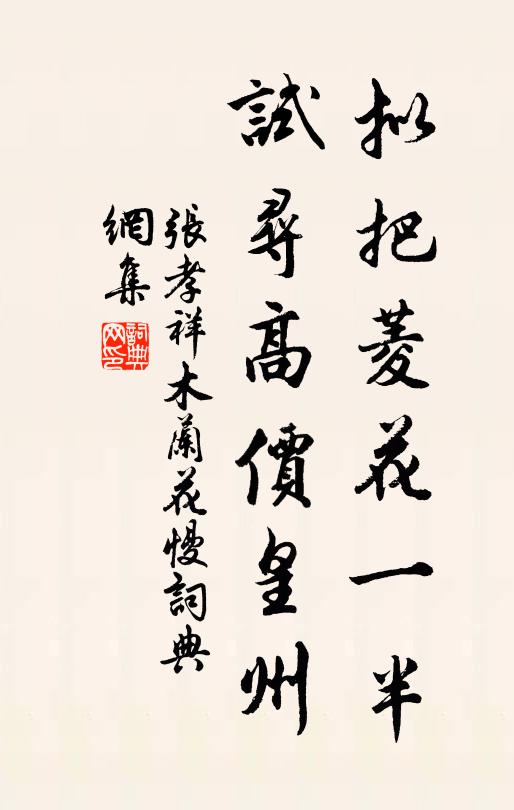 拟把菱花一半
試尋高價皇州
張孝祥木蘭花慢詞典
網集
詞典网印